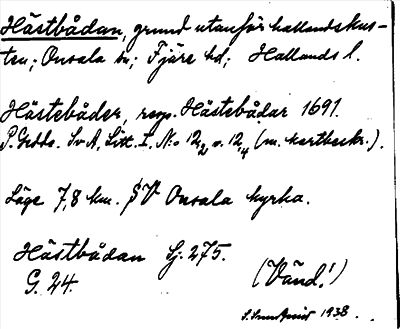 Hästbådan, grund utanför hallandskus-
ten; Onsala sn; Fjäre hd; Hallands l.
Hästebåder, resp. Hästebådar 1691.
P. Gedda. Sv A, Litt. I, No 12,2 o. 12,4 (m. kartbeskr.).
Läge 7,8 km. SV Onsala kyrka.
Hästbådan Sj. 275.
G. 24.
(Vänd!)
1938.